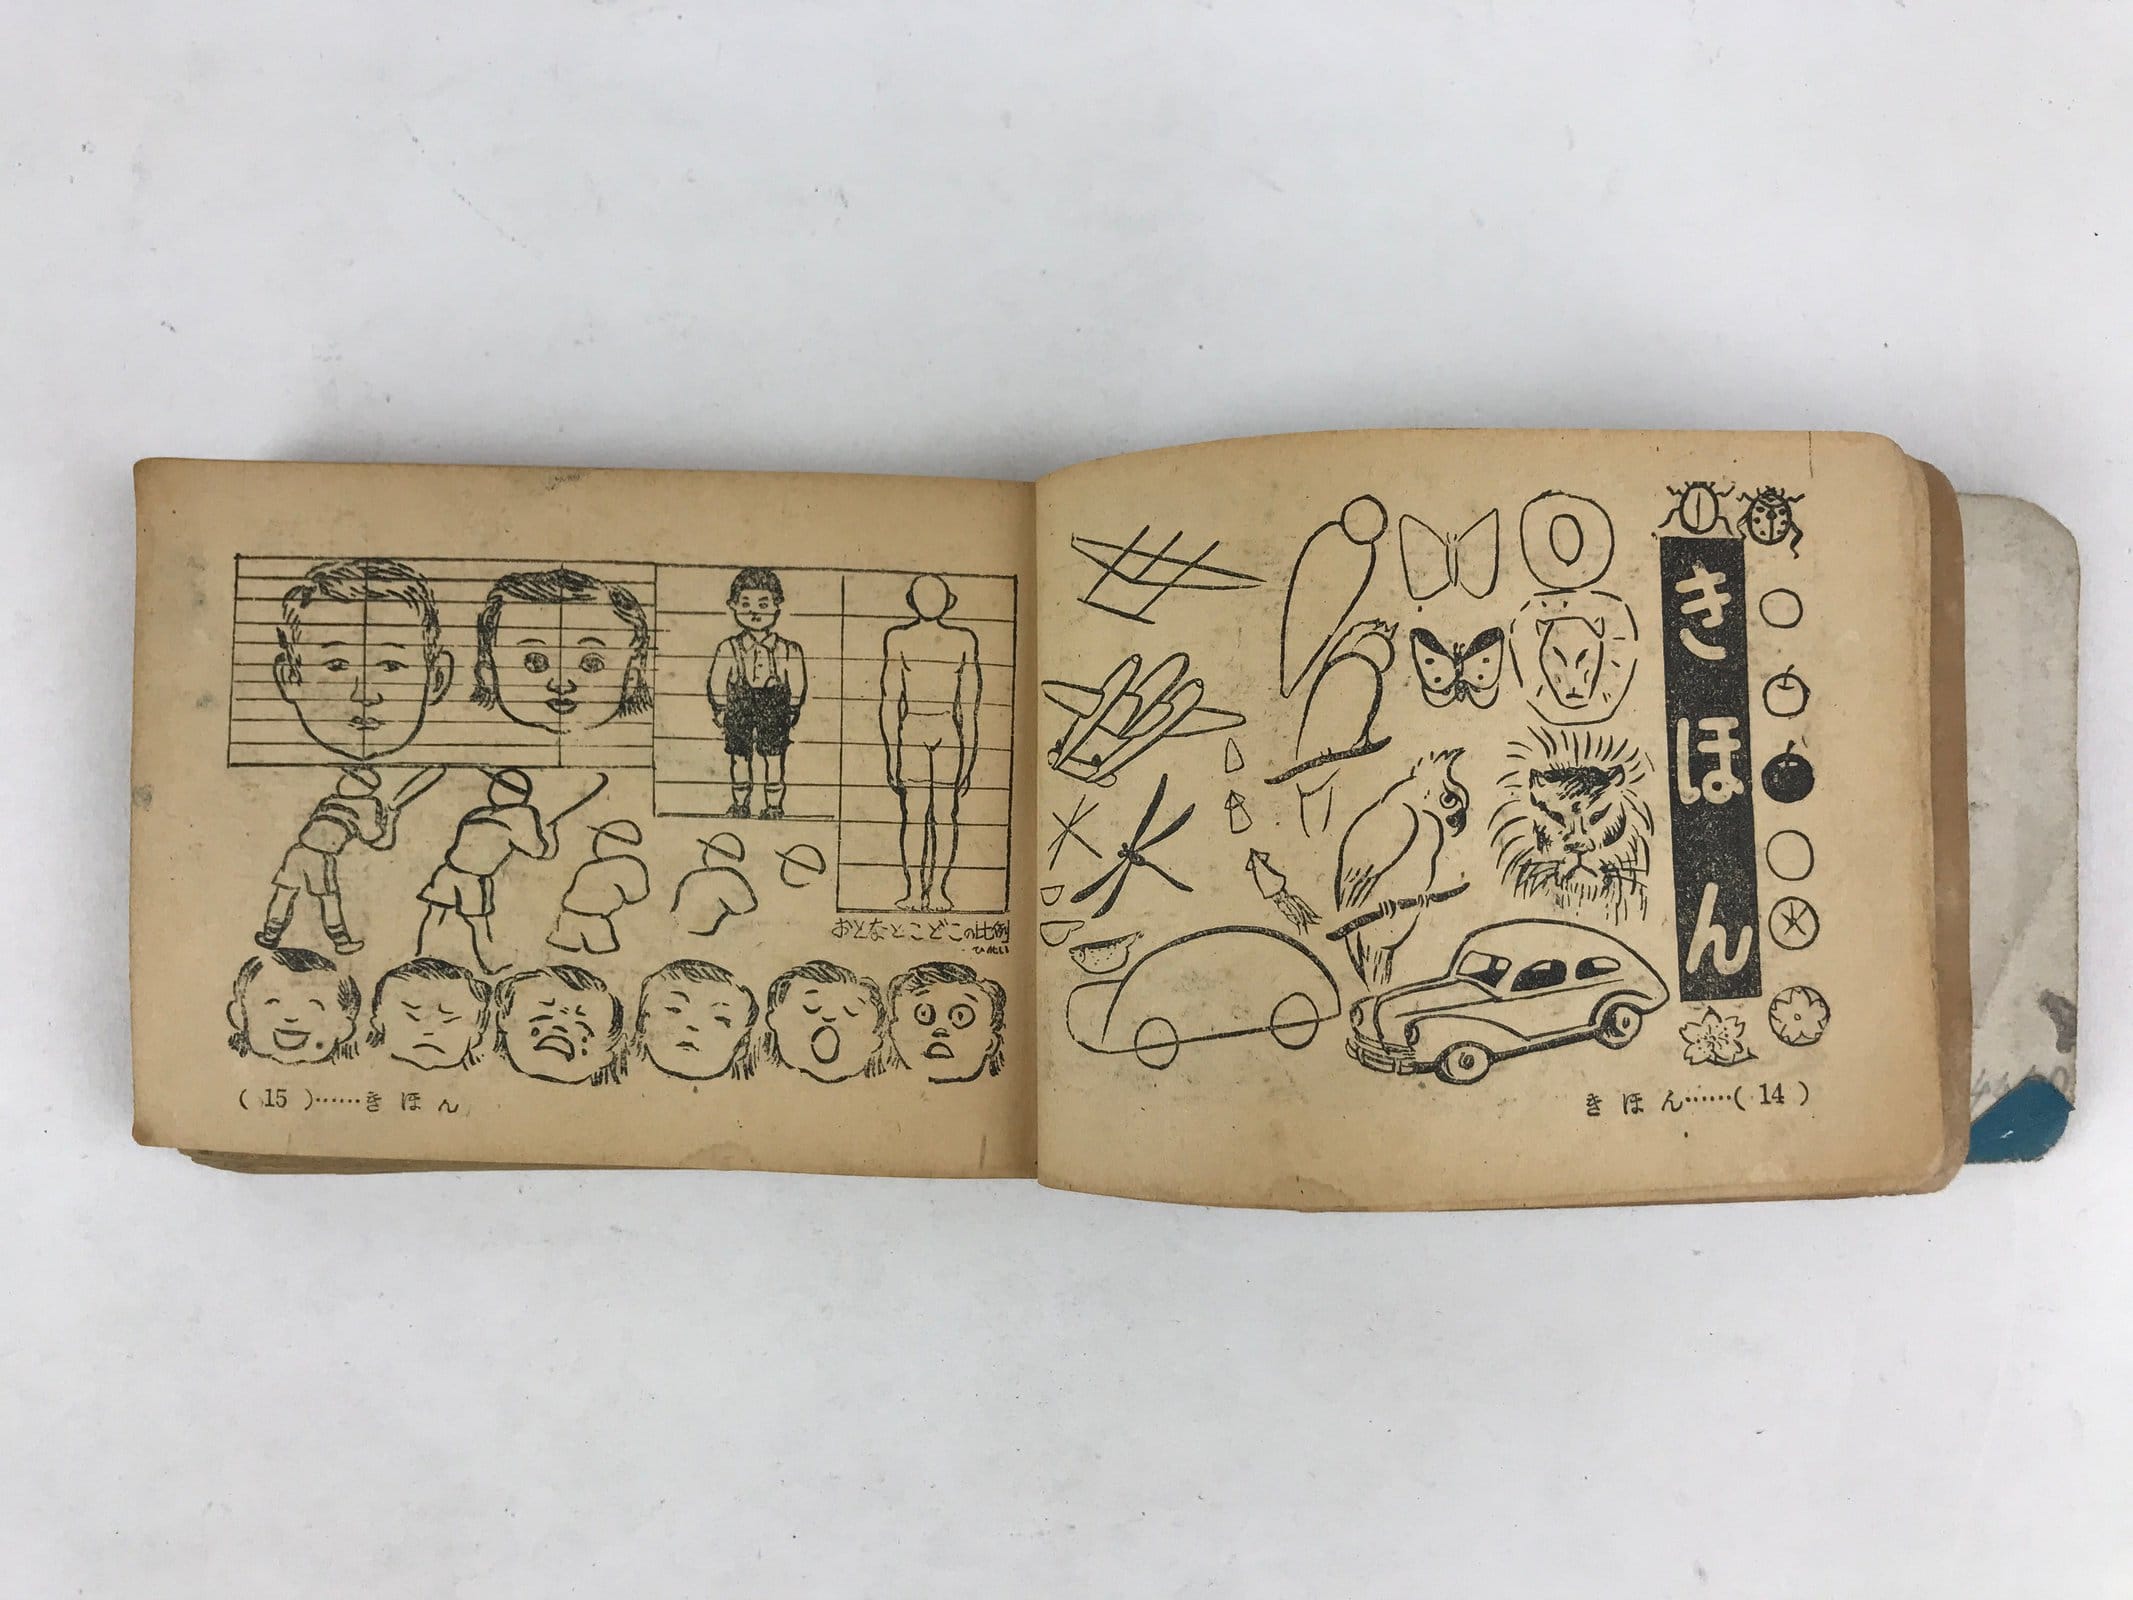 きほん
きほん……(14)
おとなとこどもの比例
ひれい
(15)……きほん